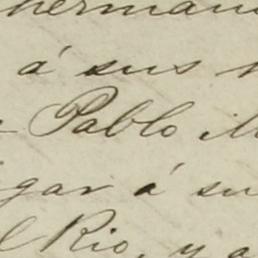 herman
á sus
Pablo M
gar á su
l Rio, y a